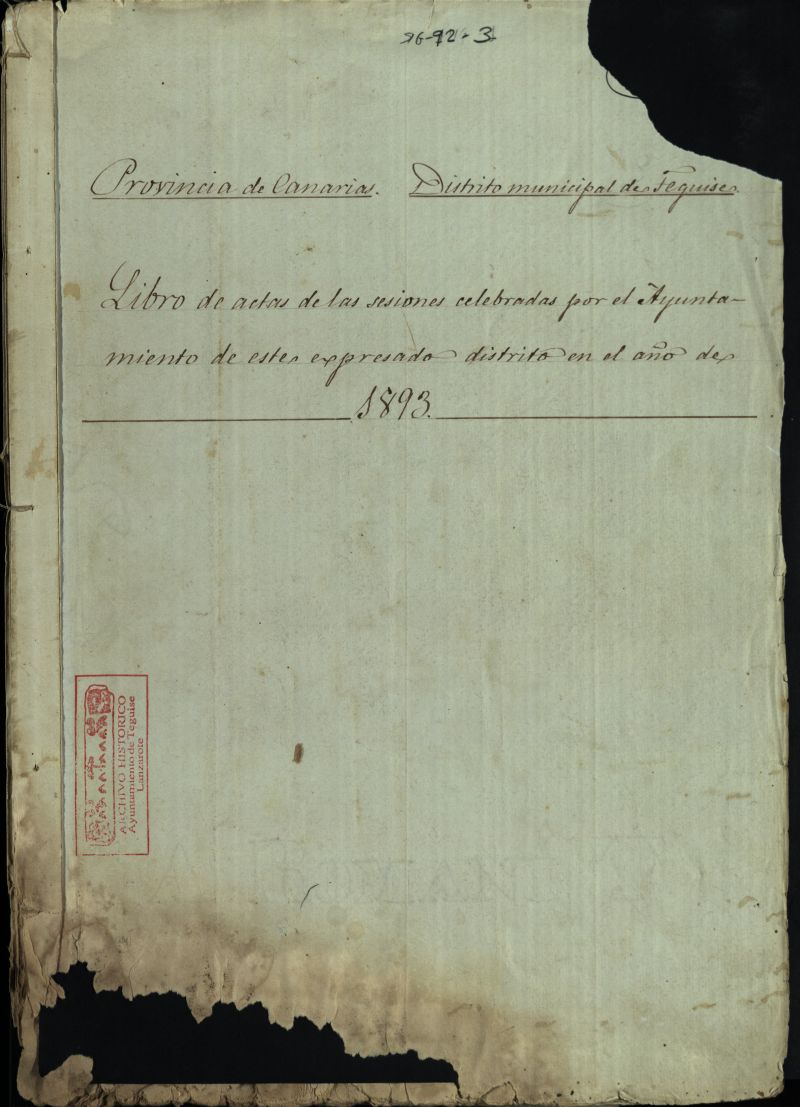 Provincia de Canarias. Distrito municipal de Teguise.
Libro de actas de las sesiones celebradas por el Ayunta-
miento de este expresado distrito en el año de
1893.
ARCHIVO HISTORICO
Ayuntamiento de Teguise
Lanzarote